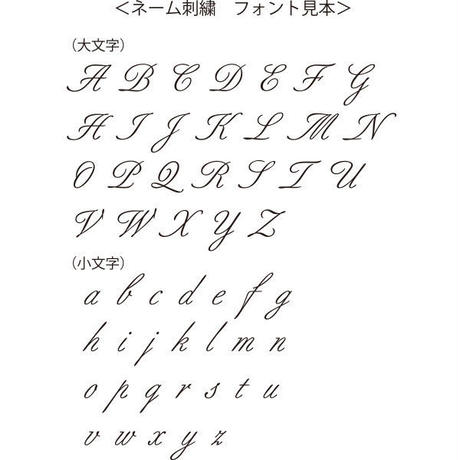 ＜ネーム刺繍　フォント見本＞
（大文字）
A B C D E F G
H I J K L M N
O P Q R S T U
V W X Y Z
（小文字）
a b c d e f g
h i j k l m n
o p q r s t u
v w x y z